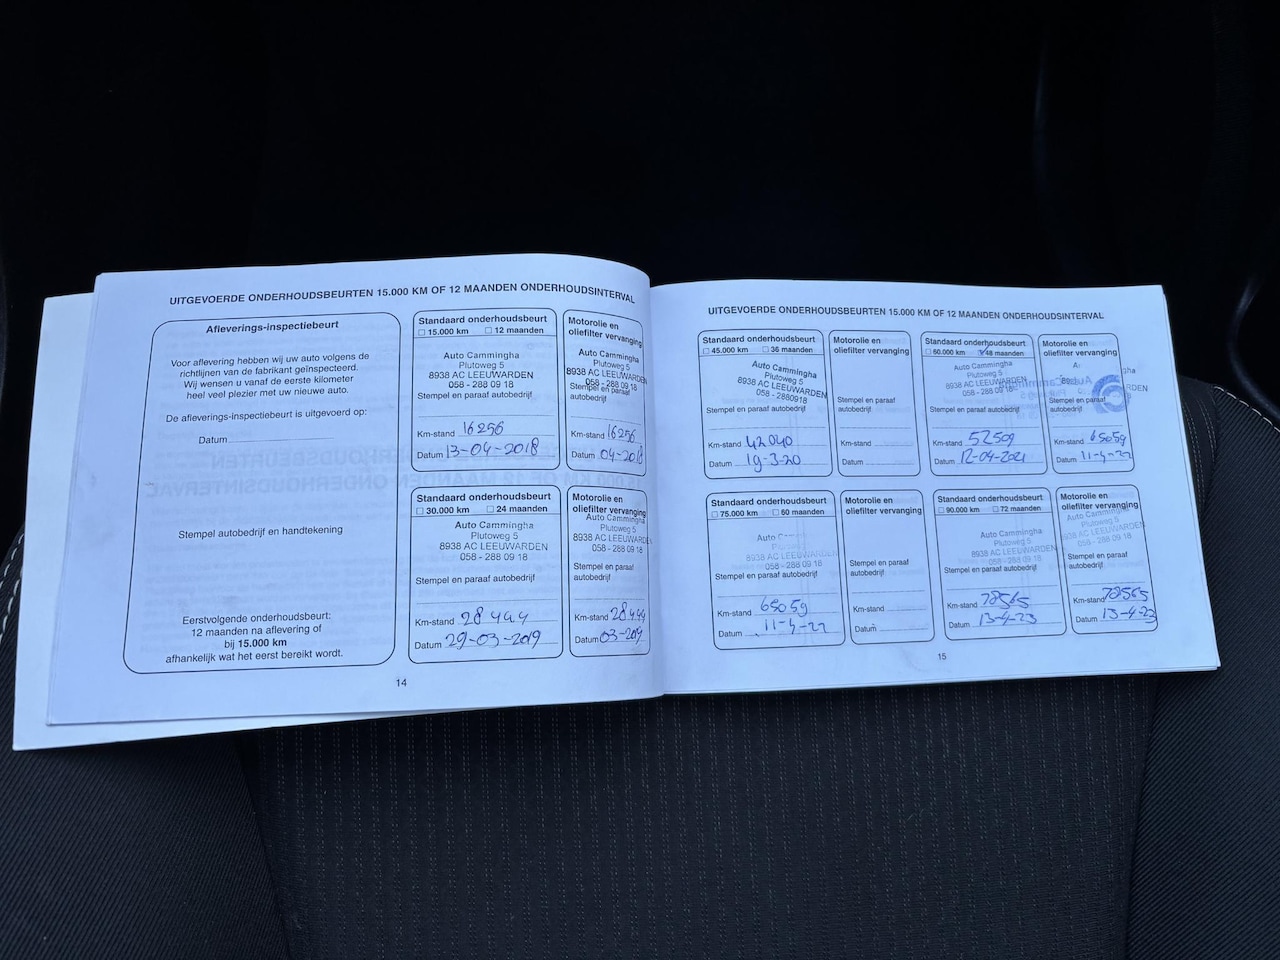 UITGEVOERDE ONDERHOUDSBEURTEN 15.000 KM OF 12 MAANDEN ONDERHOUDSINTERVAL
Afleverings-inspectiebeurt
Voor aflevering hebben wij uw auto volgens de
richtlijnen van de fabrikant geïnspecteerd.
Wij wensen u vanaf de eerste kilometer
heel veel plezier met uw nieuwe auto.
De afleverings-inspectiebeurt is uitgevoerd op:
Datum
Stempel autobedrijf en handtekening
Eerstvolgende onderhoudsbeurt:
12 maanden na aflevering of
bij 15.000 km
afhankelijk wat het eerst bereikt wordt.
Standaard onderhoudsbeurt
15.000 km 12 maanden
Auto Cammingha
Plutoweg 5
8938 AC LEEUWARDEN
058 - 288 09 18
Stempel en paraaf autobedrijf
Km-stand 16256
Datum 13-04-2018
Motorolie en
oliefilter vervanging
Auto Cammingha
Plutoweg 5
8938 AC LEEUWARDEN
058 - 288 09 18
Stempel en paraaf
autobedrijf
Km-stand 16256
Datum 04-2018
Standaard onderhoudsbeurt
30.000 km 24 maanden
Auto Cammingha
Plutoweg 5
8938 AC LEEUWARDEN
058 - 288 09 18
Stempel en paraaf autobedrijf
Km-stand 28444
Datum 29-03-2019
Motorolie en
oliefilter vervanging
Auto Cammingha
Plutoweg 5
8938 AC LEEUWARDEN
058 - 288 09 18
Stempel en paraaf
autobedrijf
Km-stand 28444
Datum 03-2019
14
UITGEVOERDE ONDERHOUDSBEURTEN 15.000 KM OF 12 MAANDEN ONDERHOUDSINTERVAL
Standaard onderhoudsbeurt
45.000 km 36 maanden
Auto Cammingha
Plutoweg 5
8938 AC LEEUWARDEN
058 - 2880918
Stempel en paraaf autobedrijf
Km-stand 42040
Datum 19-3-20
Motorolie en
oliefilter vervanging
Stempel en paraaf
autobedrijf
Km-stand
Datum
Standaard onderhoudsbeurt
60.000 km 48 maanden
Auto Cammingha
Plutoweg 5
8938 AC LEEUWARDEN
058 - 288 09 18
Stempel en paraaf autobedrijf
Km-stand 52509
Datum 12-04-2021
Motorolie en
oliefilter vervanging
Stempel en paraaf
autobedrijf
Km-stand 65059
Datum 11-4-22
Standaard onderhoudsbeurt
75.000 km 60 maanden
Plutoweg 5
8938 AC LEEUWARDEN
058 - 288 09 18
Stempel en paraaf autobedrijf
Km-stand 65059
Datum 11-4-22
Motorolie en
oliefilter vervanging
Stempel en paraaf
autobedrijf
Km-stand
Datum
Standaard onderhoudsbeurt
90.000 km 72 maanden
Auto Cammingha
Plutoweg 5
8938 AC LEEUWARDEN
058 - 288 09 18
Stempel en paraaf autobedrijf
Km-stand 78565
Datum 13-4-23
Motorolie en
oliefilter vervanging
Auto Cammingha
Plutoweg 5
8938 AC LEEUWARDEN
058 - 288 09 18
Stempel en paraaf
autobedrijf
Km-stand 78565
Datum 13-4-23
15